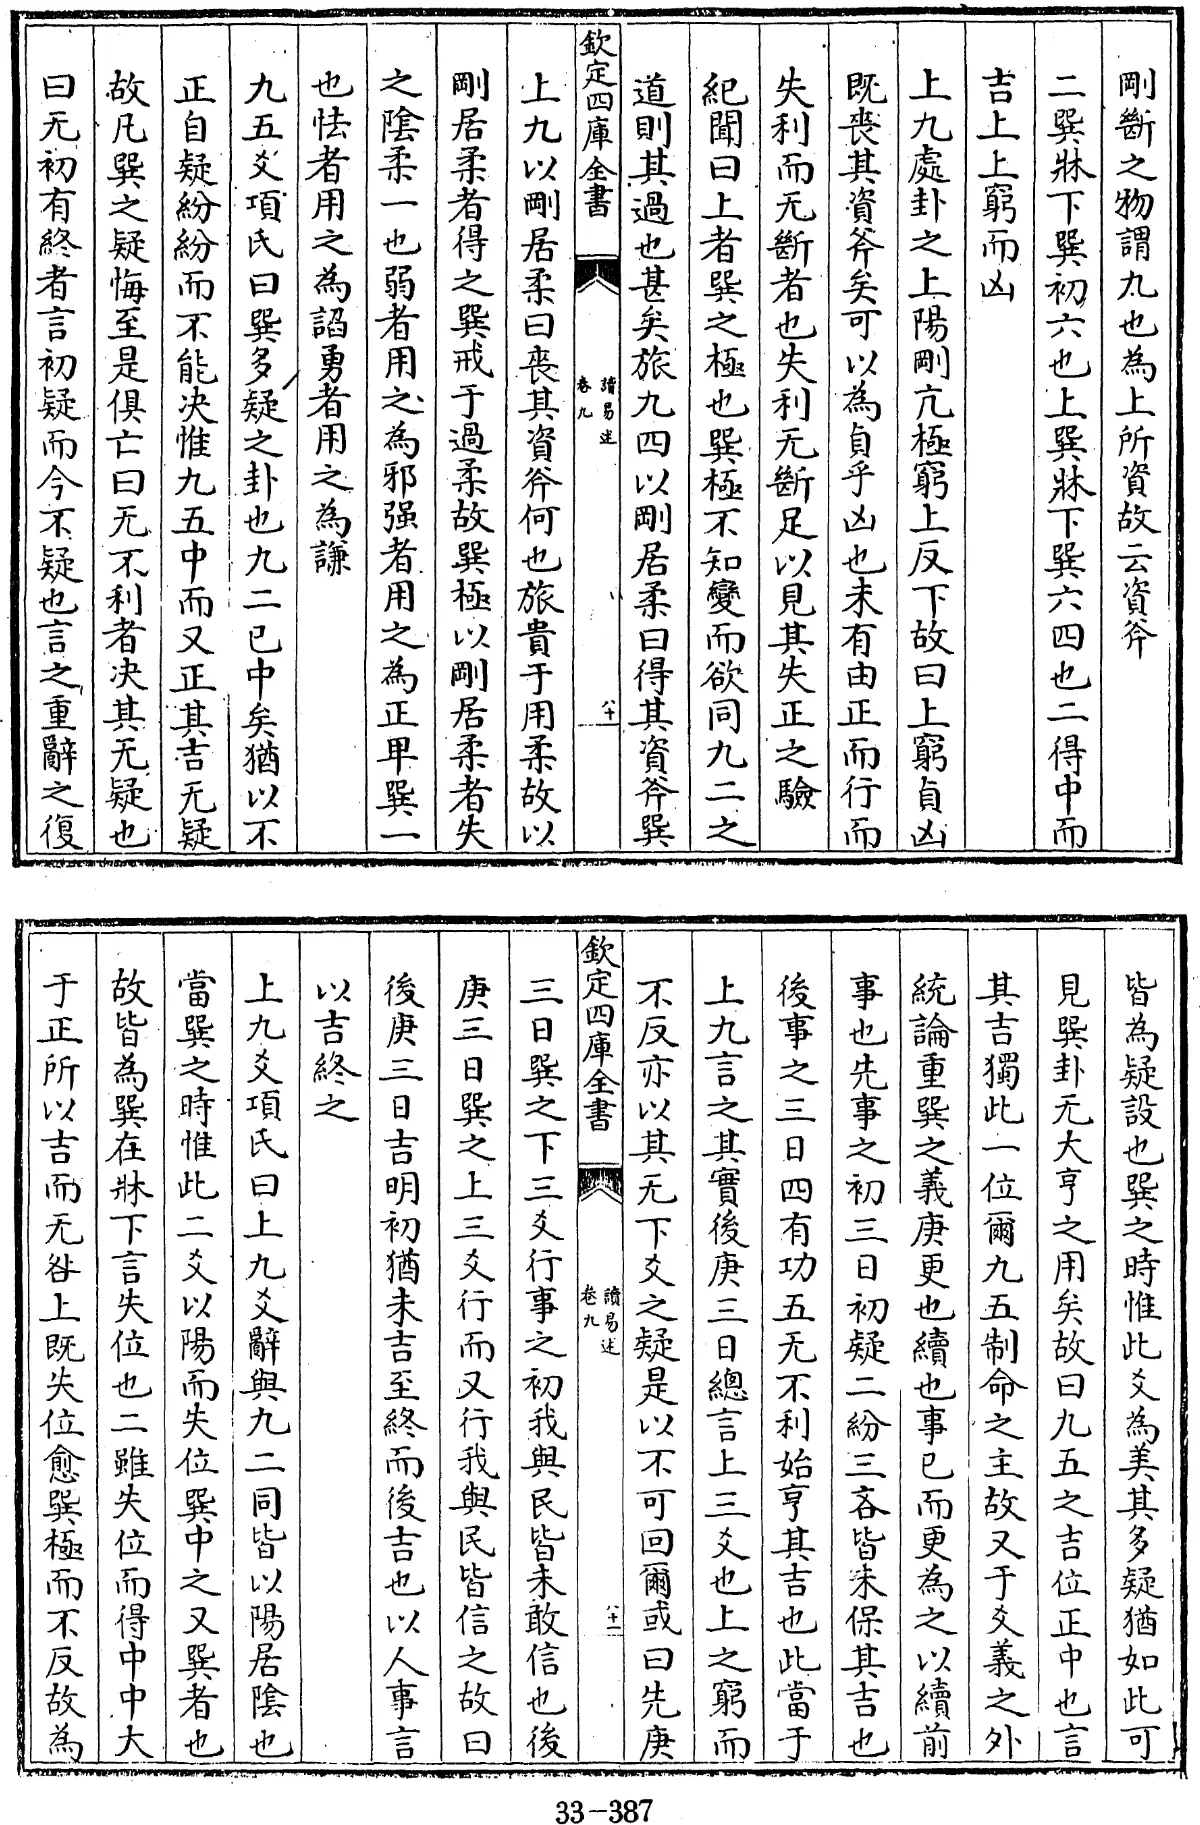 剛斷之物謂九也為上所資故云資斧
二巽牀下巽初六也上巽牀下巽六四也二得中而
吉上上窮而凶
上九處卦之上陽剛亢極窮上反下故曰上窮貞凶
既喪其資斧矣可以為貞乎凶也未有由正而行而
失利而无斷者也失利无斷足以見其失正之驗
紀聞曰上者巽之極也巽極不知變而欲同九二之
道則其過也甚矣旅九四以剛居柔曰得其資斧巽
欽定四庫全書
讀易述
卷九
八十
上九以剛居柔曰喪其資斧何也旅貴于用柔故以
剛居柔者得之巽戒于過柔故巽極以剛居柔者失
之陰柔一也弱者用之為邪强者用之為正卑巽一
也怯者用之為諂勇者用之為謙
九五爻項氏曰巽多疑之卦也九二已中矣猶以不
正自疑紛紛而不能决惟九五中而又正其吉无疑
故凡巽之疑悔至是俱亡曰无不利者决其无疑也
曰无初有終者言初疑而今不疑也言之重辭之復
皆為疑設也巽之時惟此爻為美其多疑猶如此可
見巽卦无大亨之用矣故曰九五之吉位正中也言
其吉獨此一位爾九五制命之主故又于爻義之外
統論重巽之義庚更也續也事已而更為之以續前
事也先事之初三日初疑二紛三吝皆未保其吉也
後事之三日四有功五无不利始亨其吉也此當于
上九言之其實後庚三日總言上三爻也上之窮而
不反亦以其无下爻之疑是以不可回爾或曰先庚
欽定四庫全書
讀易述
卷九
八十一
三日巽之下三爻行事之初我與民皆未敢信也後
庚三日巽之上三爻行而又行我與民皆信之故曰
後庚三日吉明初猶未吉至終而後吉也以人事言
以吉終之
上九爻項氏曰上九爻辭與九二同皆以陽居陰也
當巽之時惟此二爻以陽而失位巽中之又巽者也
故皆為巽在牀下言失位也二雖失位而得中中大
于正所以吉而无咎上既失位愈巽極而不反故為
33-387